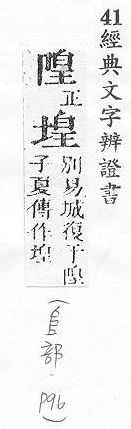 41 經典文字辨證書
隍正
堭別易城復于隍
子夏傳作堭
(𨸏部.P96)